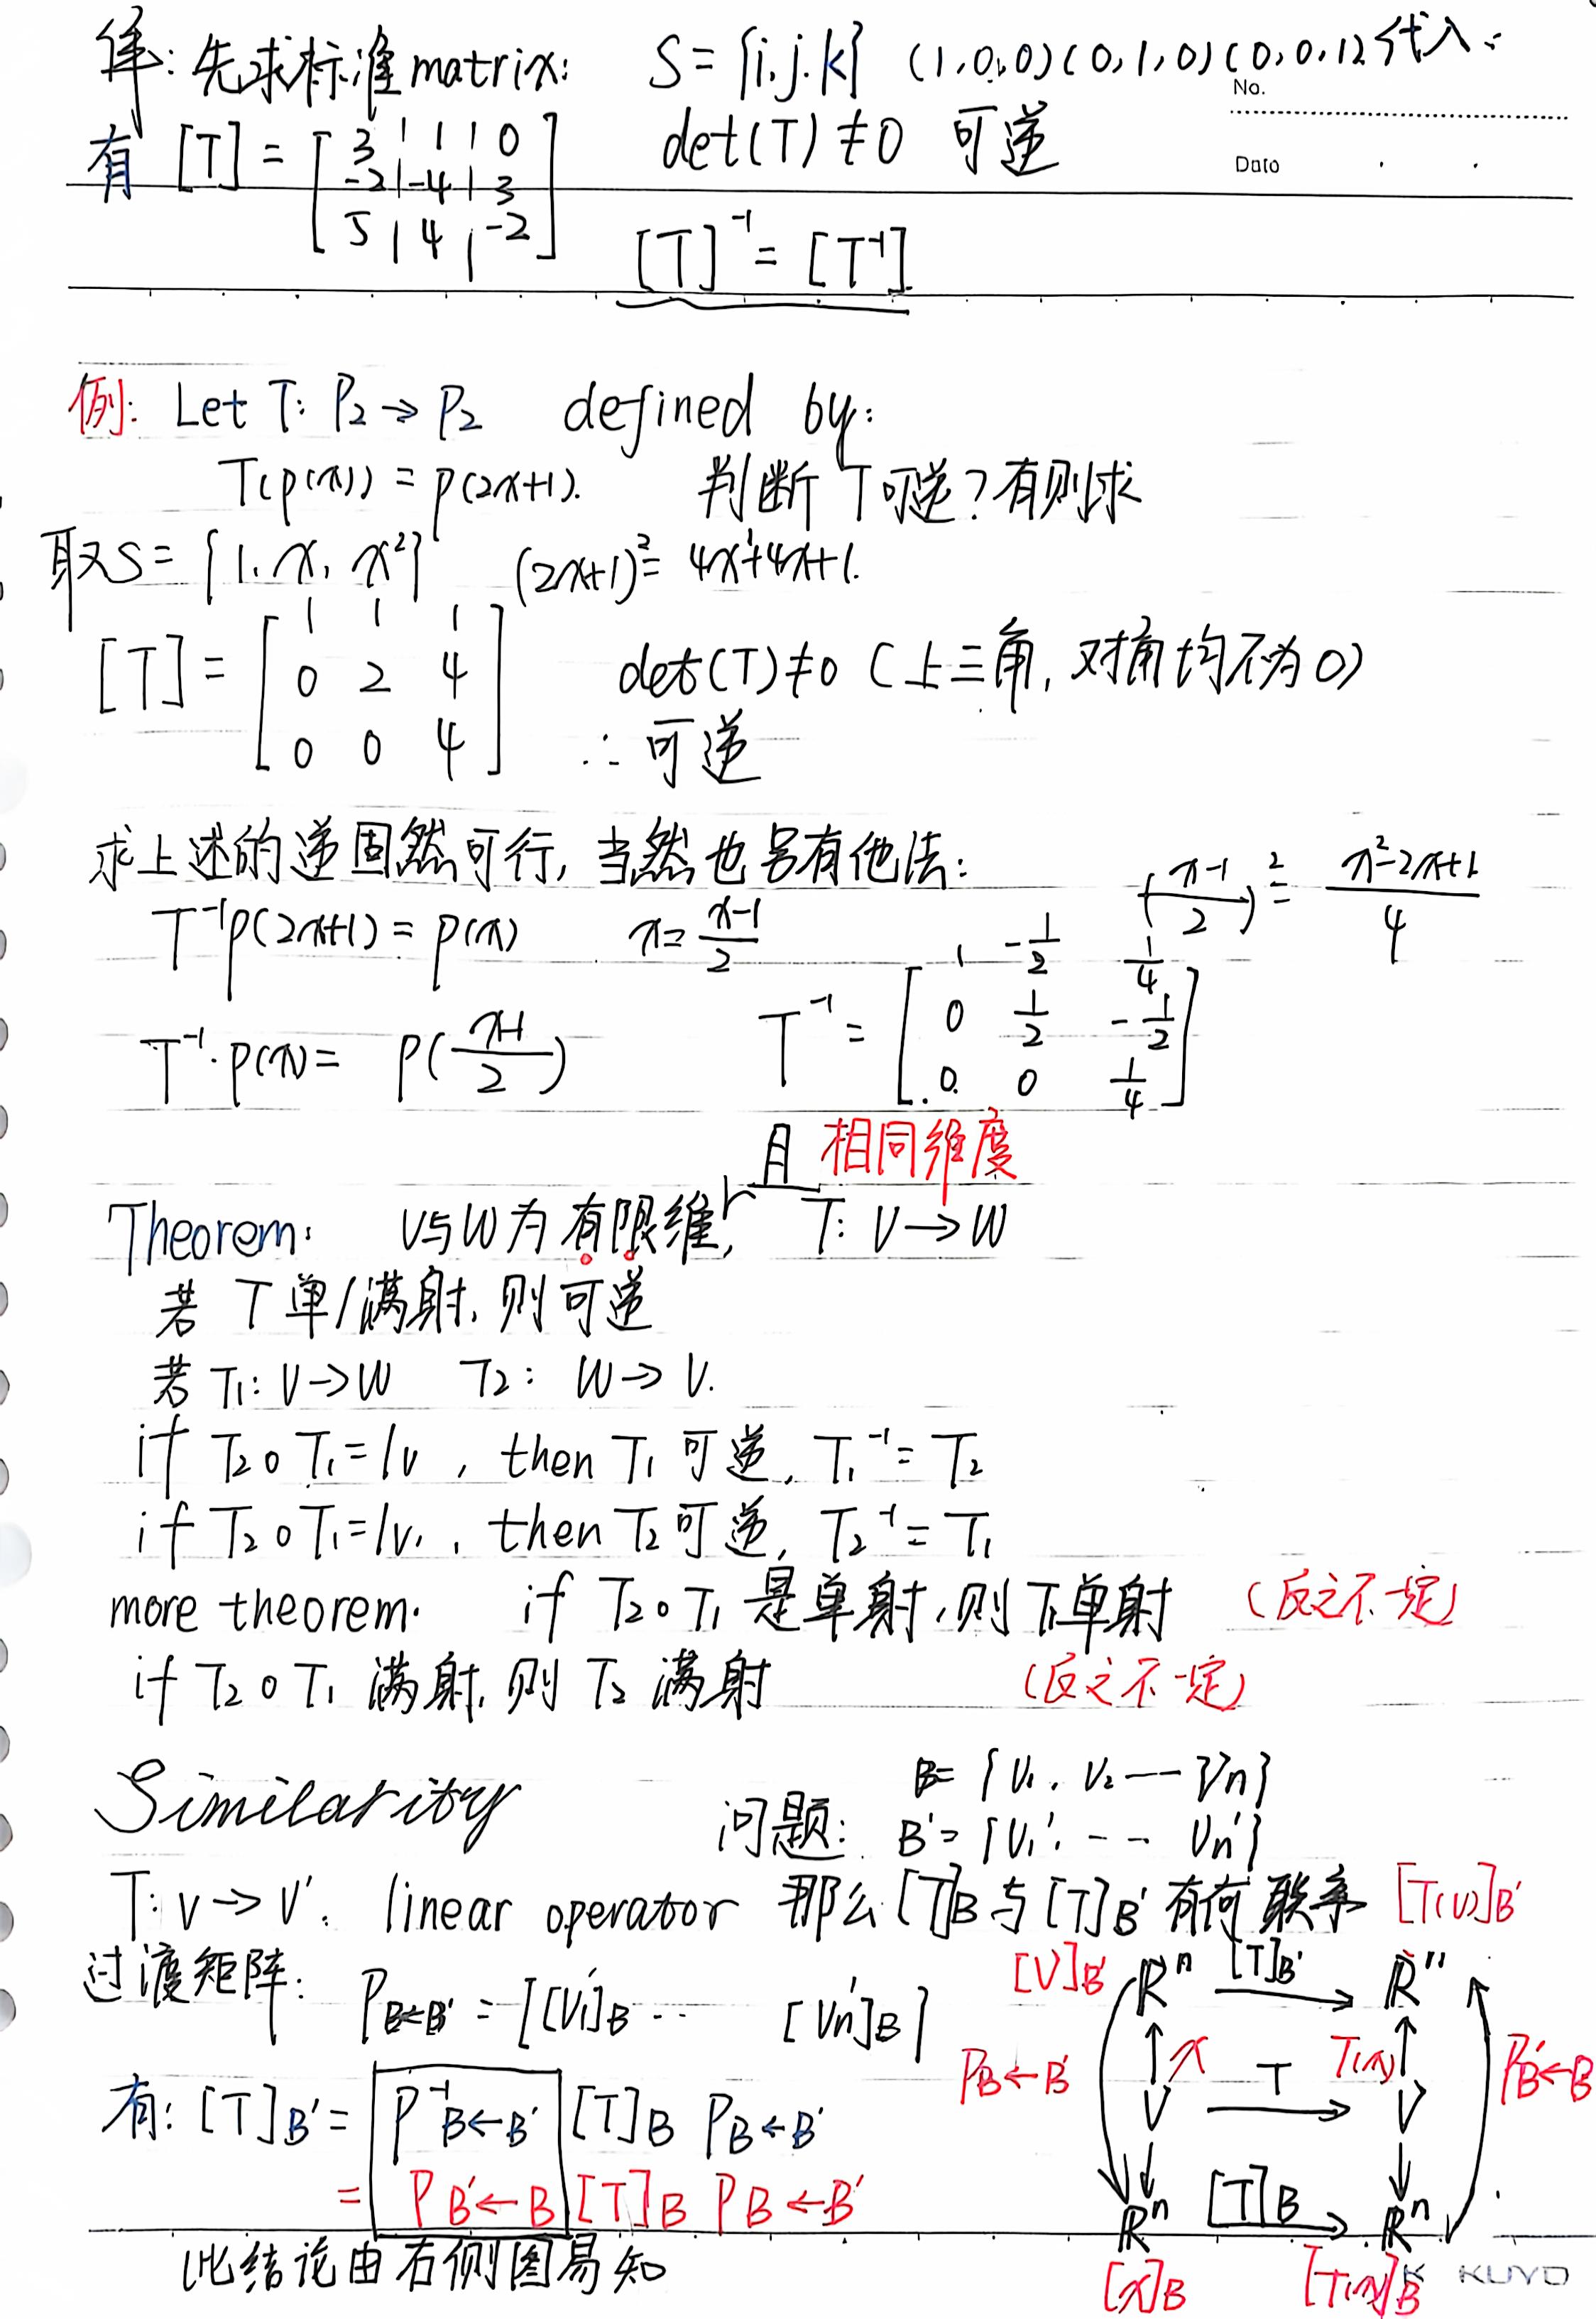 解: 先求标准matrix: S = {i, j, k} (1,0,0)(0,1,0)(0,0,1)代入:
No.
有 [T] = [ 3 | 1 | 0 det(T) ≠ 0 可逆
Date
-2 | -4 | 3
5 | 4 | -2 ]
[T]⁻¹ = [T⁻¹]
例: Let T: P₂ → P₂ defined by:
T(p(x)) = p(2x+1). 判断 T 可逆? 有则求
取S = {1, x, x²} (2x+1)² = 4x²+4x+1.
[T] = [ 1 1 1
0 2 4 det(T) ≠ 0 (上三角, 对角均不为0)
0 0 4 ] ∴ 可逆
求上述的逆固然可行, 当然也另有他法:
(x-1 / 2)² = x²-2x+1 / 4
T⁻¹p(2x+1) = p(x) x = x-1 / 2
T⁻¹·p(x) = p(x-1 / 2) T⁻¹ = [ 1 -1/2 1/4
0 1/2 -1/2
0 0 1/4 ]
且 相同维度
Theorem: V与W为有限维, T: V → W
若 T 单/满射, 则可逆
若 T₁: V → W T₂: W → V.
if T₂ ∘ T₁ = Iv, then T₁ 可逆, T₁⁻¹ = T₂
if T₂ ∘ T₁ = Iv, then T₂ 可逆, T₂⁻¹ = T₁
more theorem. if T₂ ∘ T₁ 是单射, 则 T₁单射 (反之不一定)
if T₂ ∘ T₁ 满射, 则 T₂ 满射 (反之不一定)
Similarity
B = {V₁, V₂ --- Vn}
问题: B' = {V₁', -- Vn'}
T: V → V. linear operator 那么[T]B 与 [T]B' 有何联系
过渡矩阵: P B←B' = [[V₁']B ... [Vn']B]
有: [T]B' = P⁻¹ B←B' [T]B P B←B'
= P B'←B [T]B P B←B'
此结论由右侧图易知
[T(V)]B'
[V]B' Rⁿ [T]B' → Rⁿ
P B←B' x T(x) P B'←B
V T → V
Rⁿ [T]B → Rⁿ
[x]B [T(x)]B
KUYO